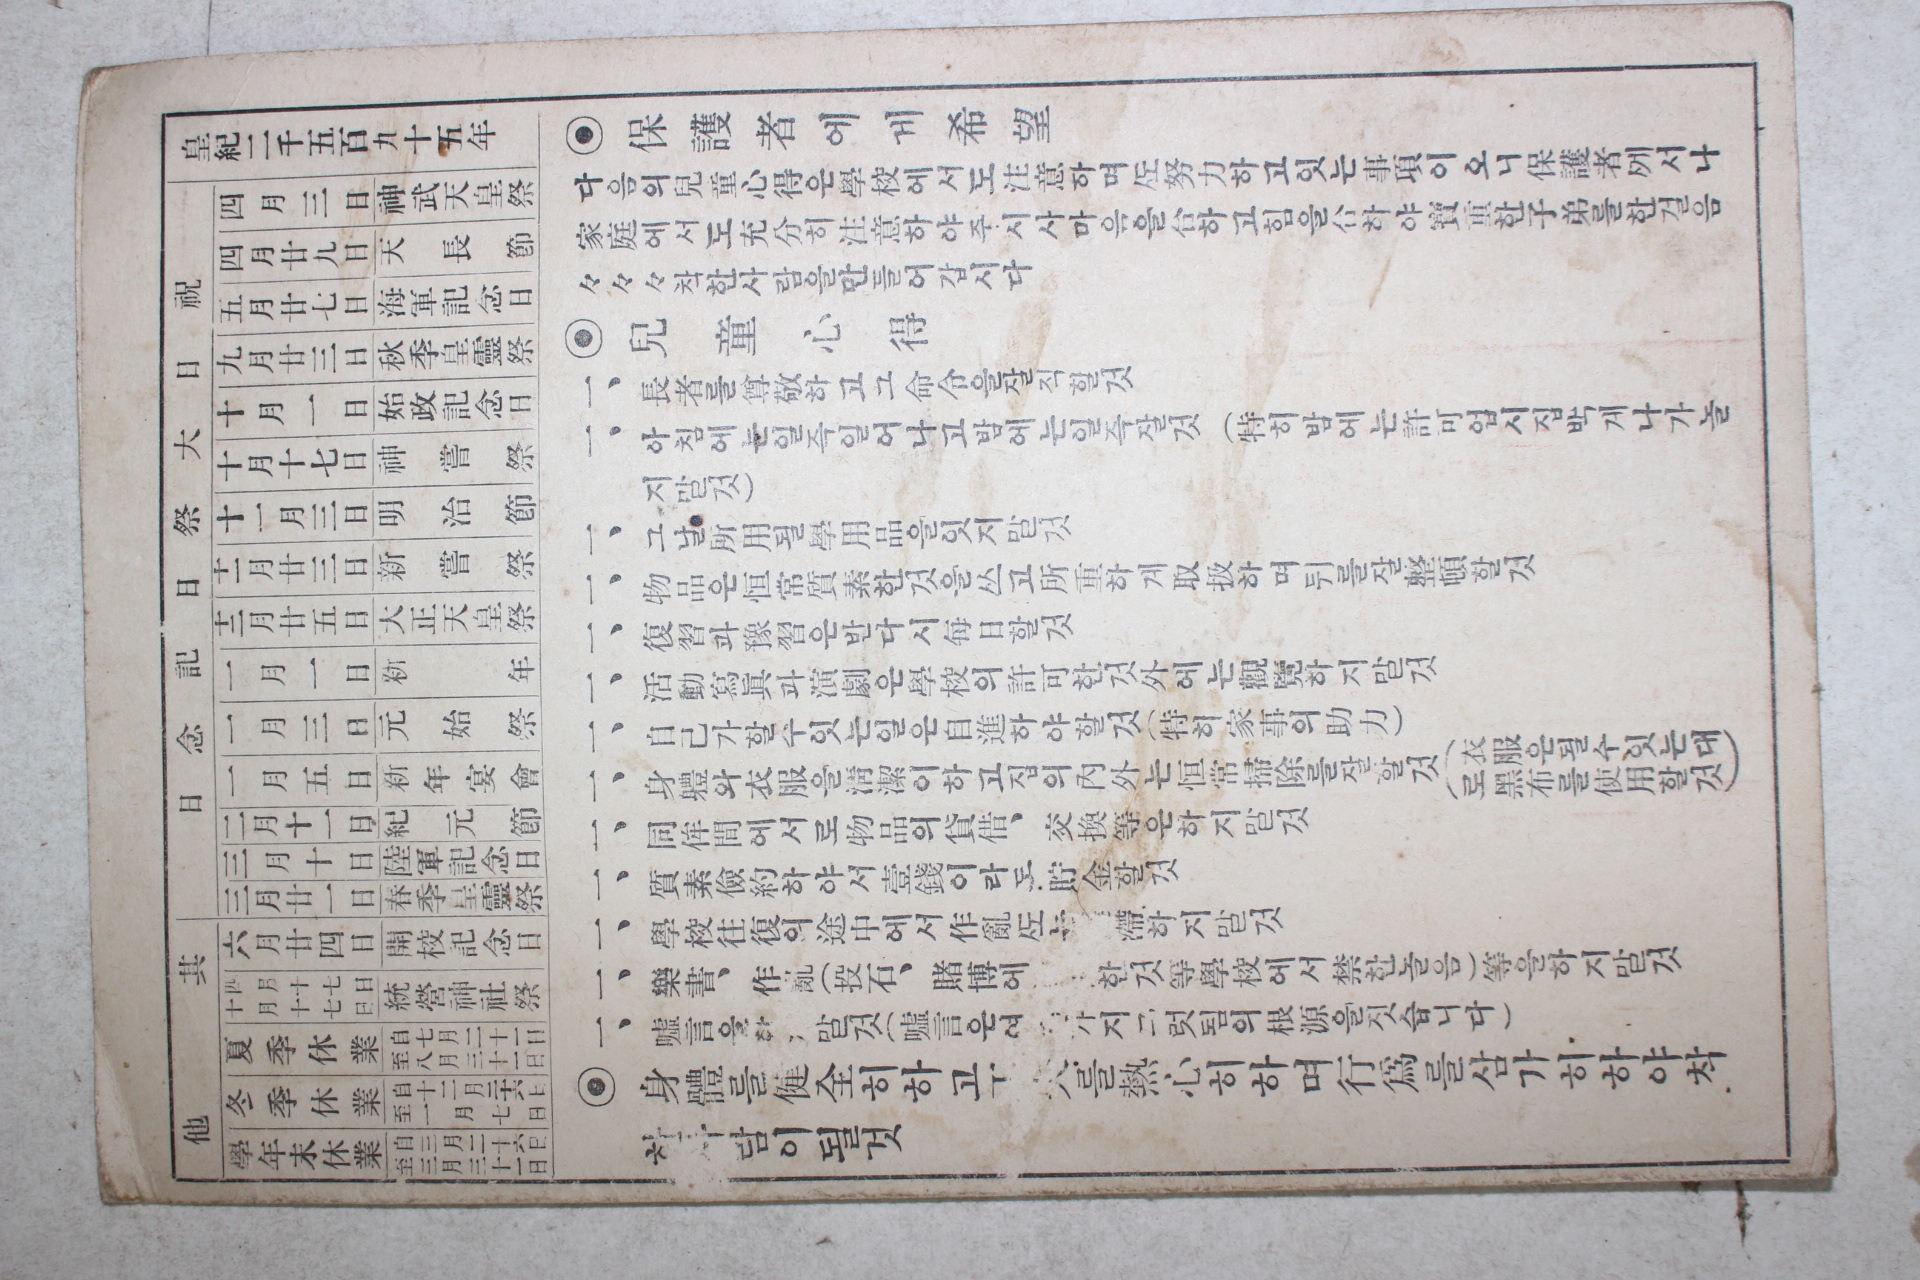 皇紀二千五百九十五年
祝大祭日記念日
四月三日 神武天皇祭
四月廿九日 天長節
五月廿七日 海軍記念日
九月廿三日 秋季皇靈祭
十月一日 始政記念日
十月十七日 神嘗祭
十一月三日 明治節
十一月廿三日 新嘗祭
十二月廿五日 大正天皇祭
一月一日 新年
一月三日 元始祭
一月五日 新年宴會
二月十一日 紀元節
三月十日 陸軍記念日
三月廿一日 春季皇靈祭
其他
六月廿四日 開校記念日
四月十七日 十月十七日 統營神社祭
夏季休業 自七月二十一日 至八月三十一日
冬季休業
學年末休業
◉ 保護者에게希望
다음의兒童心得은學校에서도注意하며또努力하고잇는事項이오니保護者께서나
家庭에서도充分히注意하야주시사마음을合하고힘을合하야寶重한子弟를한걸음
々々々착한사람을만들어갑시다
◉ 兒童心得
一、長者를尊敬하고그命令을잘직할것
一、아침에는일즉일어나고밤에는일즉잘것 (特히밤에는許可업시집박게나가놀
지말것)
一、그날所用될學用品을잇지말것
一、物品은恒常質素한것을쓰고所重하게取扱하며뒤를잘整頓할것
一、復習과豫習은반다시每日할것
一、活動寫眞과演劇은學校의許可한것外에는觀覽하지말것
一、自己가할수잇는일은自進하야할것(特히家事의助力)
一、身體와衣服을淸潔이하고집의內外는恒常掃除를잘할것 (衣服은될수잇는대
로黑布를使用할것)
一、同侔間에서로物品의貸借、交換等은하지말것
一、質素儉約하야서壹錢이라도貯金할것
一、學校往復의途中에서作亂또는 滯하지말것
一、樂書、作亂(投石、賭博에 한것等學校에서禁한놀음)等을하지말것
一、噓言을 말것(噓言은 지 릇됨의根源을짓습니다)
◉ 身體를健全히하고 를熱心히하며行爲를삼가히하야착
람이될것